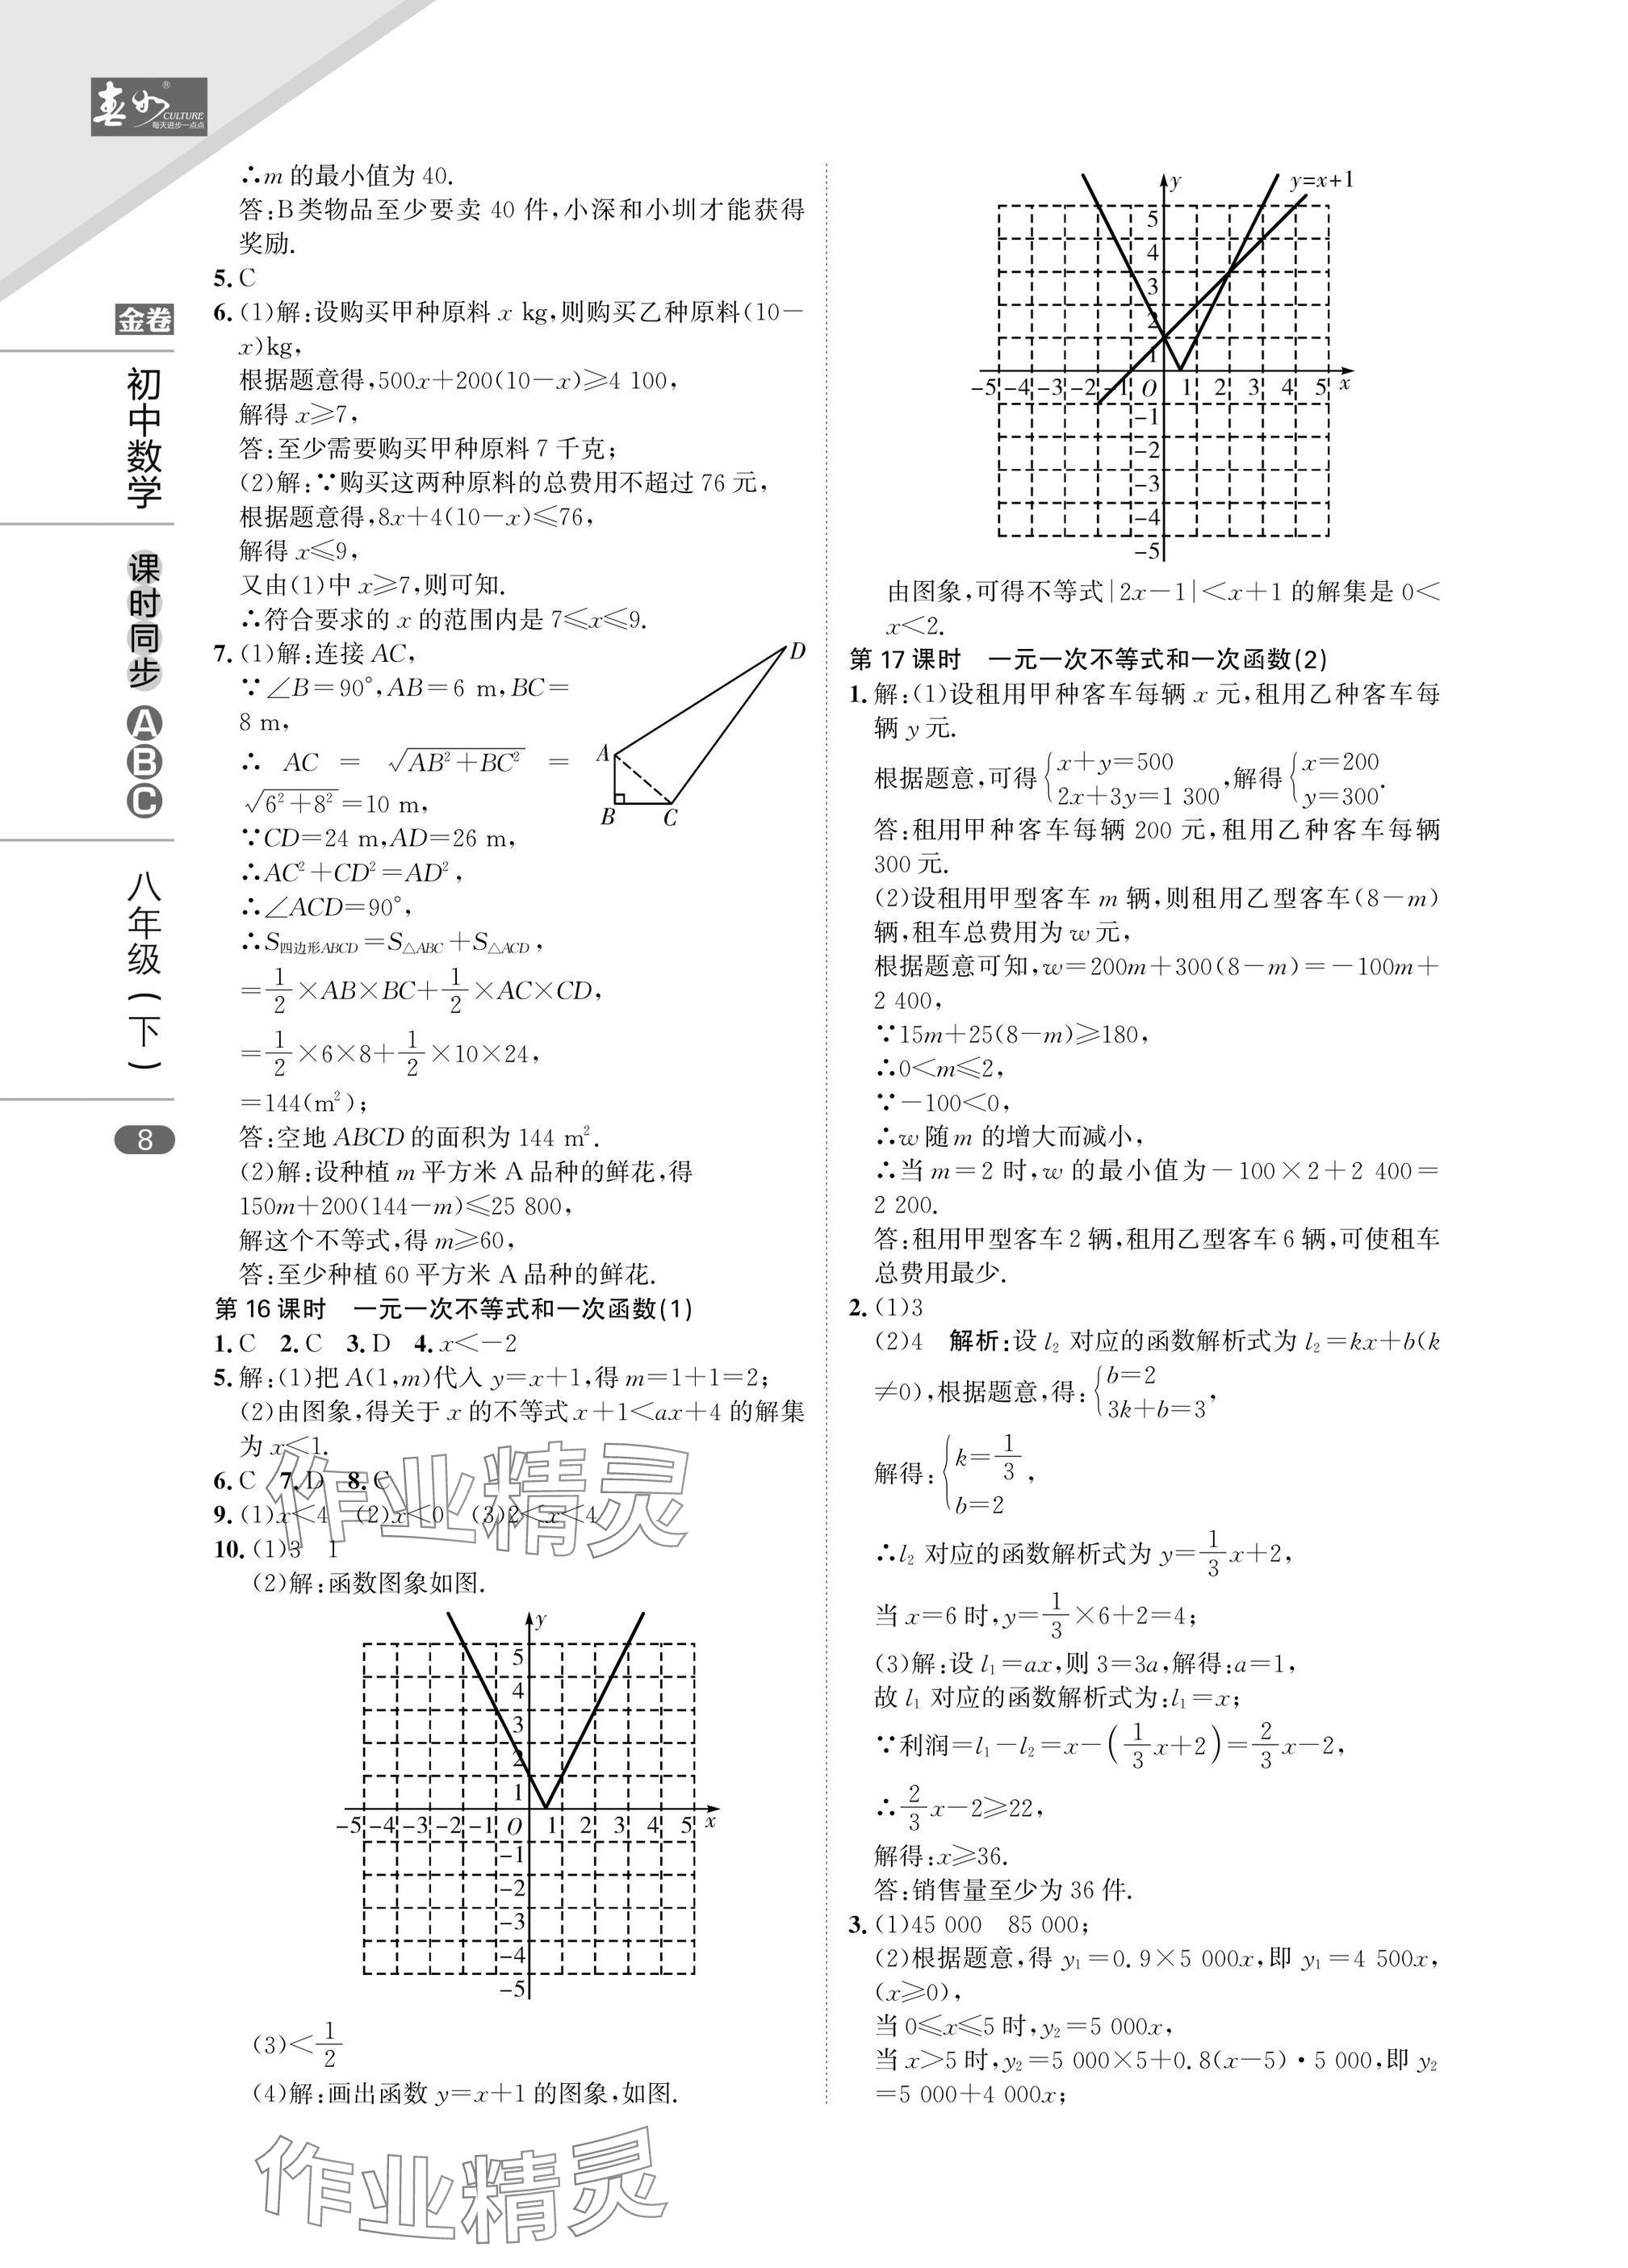 春如®
CULTURE
每天进步一点点
金卷
初中数学
课时同步
ABC
八年级(下)
8
∴m 的最小值为 40.
答:B类物品至少要卖 40 件,小深和小圳才能获得
奖励.
5. C
6. (1)解:设购买甲种原料 x kg,则购买乙种原料(10－
x)kg,
根据题意得,500x＋200(10－x)≥4 100,
解得 x≥7,
答:至少需要购买甲种原料 7 千克;
(2)解:∵购买这两种原料的总费用不超过 76 元,
根据题意得,8x＋4(10－x)≤76,
解得 x≤9,
又由(1)中 x≥7,则可知.
∴符合要求的 x 的范围内是 7≤x≤9.
7. (1)解:连接 AC,
∵∠B＝90°,AB＝6 m,BC＝
8 m,
∴ AC ＝ √(AB²＋BC²) ＝
√(6²＋8²)＝10 m,
∵CD＝24 m,AD＝26 m,
∴AC²＋CD²＝AD²,
∴∠ACD＝90°,
∴S四边形ABCD＝S△ABC＋S△ACD,
＝1/2×AB×BC＋1/2×AC×CD,
＝1/2×6×8＋1/2×10×24,
＝144(m²);
A
B
C
D
答:空地 ABCD 的面积为 144 m².
(2)解:设种植 m 平方米 A 品种的鲜花,得
150m＋200(144－m)≤25 800,
解这个不等式,得 m≥60,
答:至少种植 60 平方米 A 品种的鲜花.
第 16 课时 一元一次不等式和一次函数(1)
1. C 2. C 3. D 4. x＜－2
5. 解:(1)把 A(1,m)代入 y＝x＋1,得 m＝1＋1＝2;
(2)由图象,得关于 x 的不等式 x＋1＜ax＋4 的解集
为 x＜1.
6. C 7. D 8. C
9. (1)x＜4 (2)x＜0 (3)2＜x＜4
10. (1)3 1
(2)解:函数图象如图.
y
5
4
3
2
1
-5 -4 -3 -2 -1 O 1 2 3 4 5 x
-1
-2
-3
-4
-5
(3)＜1/2
(4)解:画出函数 y＝x＋1 的图象,如图.
y y=x+1
5
4
3
2
1
-5 -4 -3 -2 -1 O 1 2 3 4 5 x
-1
-2
-3
-4
-5
由图象,可得不等式|2x－1|＜x＋1 的解集是 0＜
x＜2.
第 17 课时 一元一次不等式和一次函数(2)
1. 解:(1)设租用甲种客车每辆 x 元,租用乙种客车每
辆 y 元.
根据题意,可得{x＋y＝500 2x＋3y＝1 300,解得{x＝200 y＝300.
答:租用甲种客车每辆 200 元,租用乙种客车每辆
300 元.
(2)设租用甲型客车 m 辆,则租用乙型客车(8－m)
辆,租车总费用为 w 元,
根据题意可知,w＝200m＋300(8－m)＝－100m＋
2 400,
∵15m＋25(8－m)≥180,
∴0＜m≤2,
∵－100＜0,
∴w 随 m 的增大而减小,
∴当 m＝2 时,w 的最小值为－100×2＋2 400＝
2 200.
答:租用甲型客车 2 辆,租用乙型客车 6 辆,可使租车
总费用最少.
2. (1)3
(2)4 解析:设 l₂ 对应的函数解析式为 l₂＝kx＋b(k
≠0),根据题意,得:{b＝2 3k＋b＝3,
解得:{k＝1/3 b＝2,
∴l₂ 对应的函数解析式为 y＝1/3x＋2,
当 x＝6 时,y＝1/3×6＋2＝4;
(3)解:设 l₁＝ax,则 3＝3a,解得:a＝1,
故 l₁ 对应的函数解析式为:l₁＝x;
∵利润＝l₁－l₂＝x－(1/3x＋2)＝2/3x－2,
∴2/3x－2≥22,
解得:x≥36.
答:销售量至少为 36 件.
3. (1)45 000 85 000;
(2)根据题意,得 y₁＝0.9×5 000x,即 y₁＝4 500x,
(x≥0),
当 0≤x≤5 时,y₂＝5 000x,
当 x＞5 时,y₂＝5 000×5＋0.8(x－5)·5 000,即 y₂
＝5 000＋4 000x;
作业精灵
作业精灵